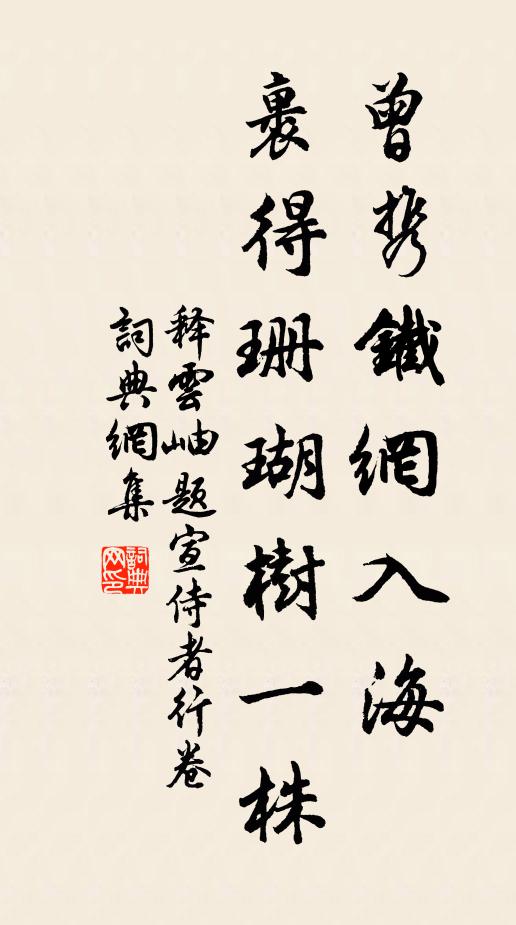 曾携鐵網入海
裹得珊瑚樹一株
释雲岫題宣侍者行卷
詞典網集
詞典網印